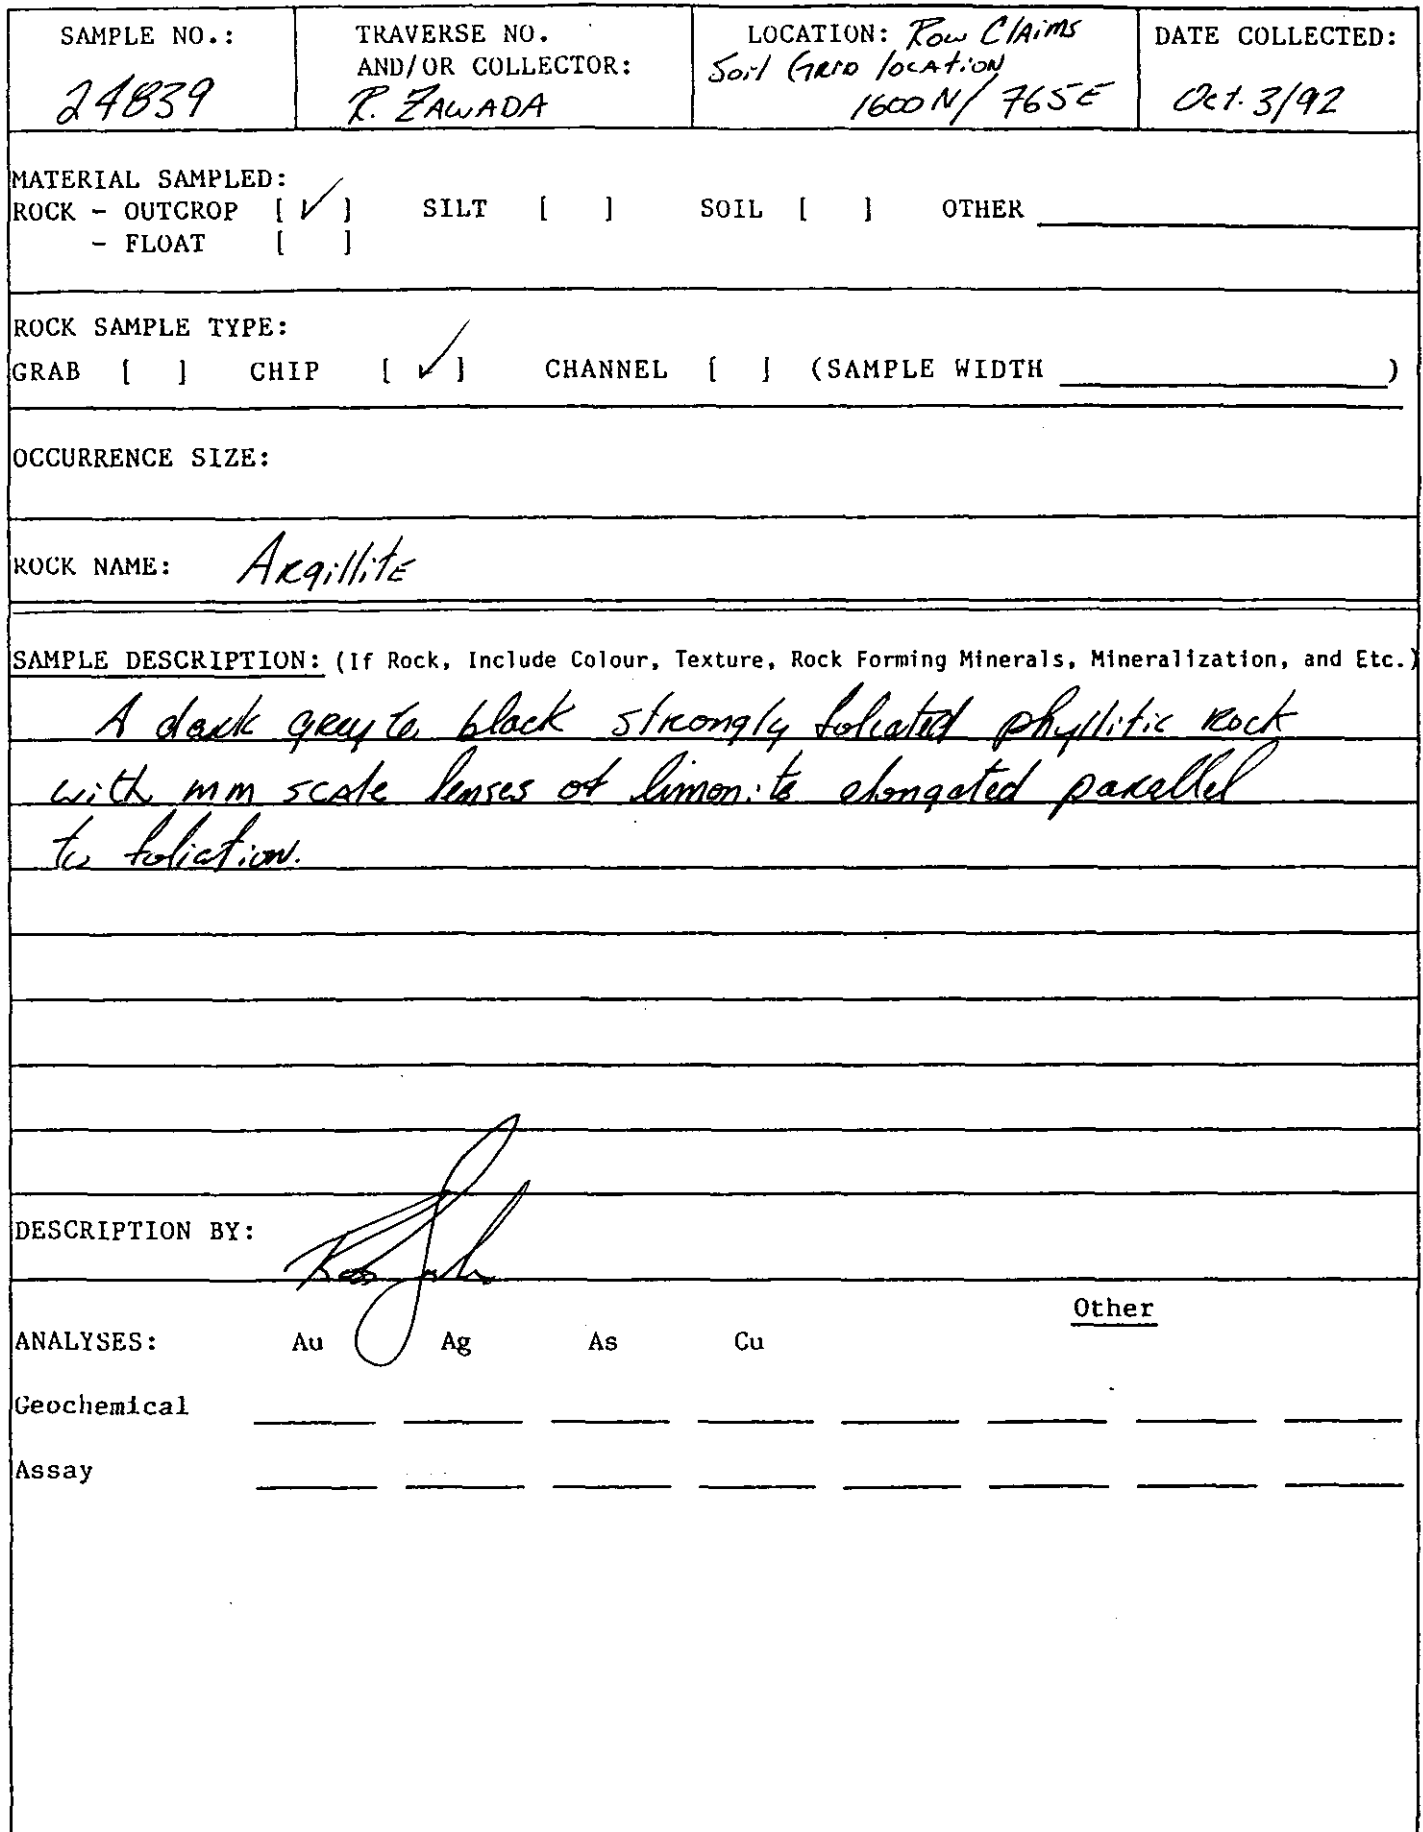 SAMPLE NO.:
24839
TRAVERSE NO.
AND/OR COLLECTOR:
R. ZAWADA
LOCATION: Row Claims
Soil Grid location
1600N/ 765E
DATE COLLECTED:
Oct. 3/92
MATERIAL SAMPLED:
ROCK - OUTCROP [ ✓ ] SILT [ ] SOIL [ ] OTHER
- FLOAT [ ]
ROCK SAMPLE TYPE:
GRAB [ ] CHIP [ ✓ ] CHANNEL [ ] (SAMPLE WIDTH ________ )
OCCURRENCE SIZE:
ROCK NAME: Argillite
SAMPLE DESCRIPTION: (If Rock, Include Colour, Texture, Rock Forming Minerals, Mineralization, and Etc.)
A dark grey to black strongly foliated phyllitic rock
with mm scale lenses of limonite elongated parallel
to foliation.
DESCRIPTION BY:
Other
ANALYSES: Au Ag As Cu
Geochemical
Assay